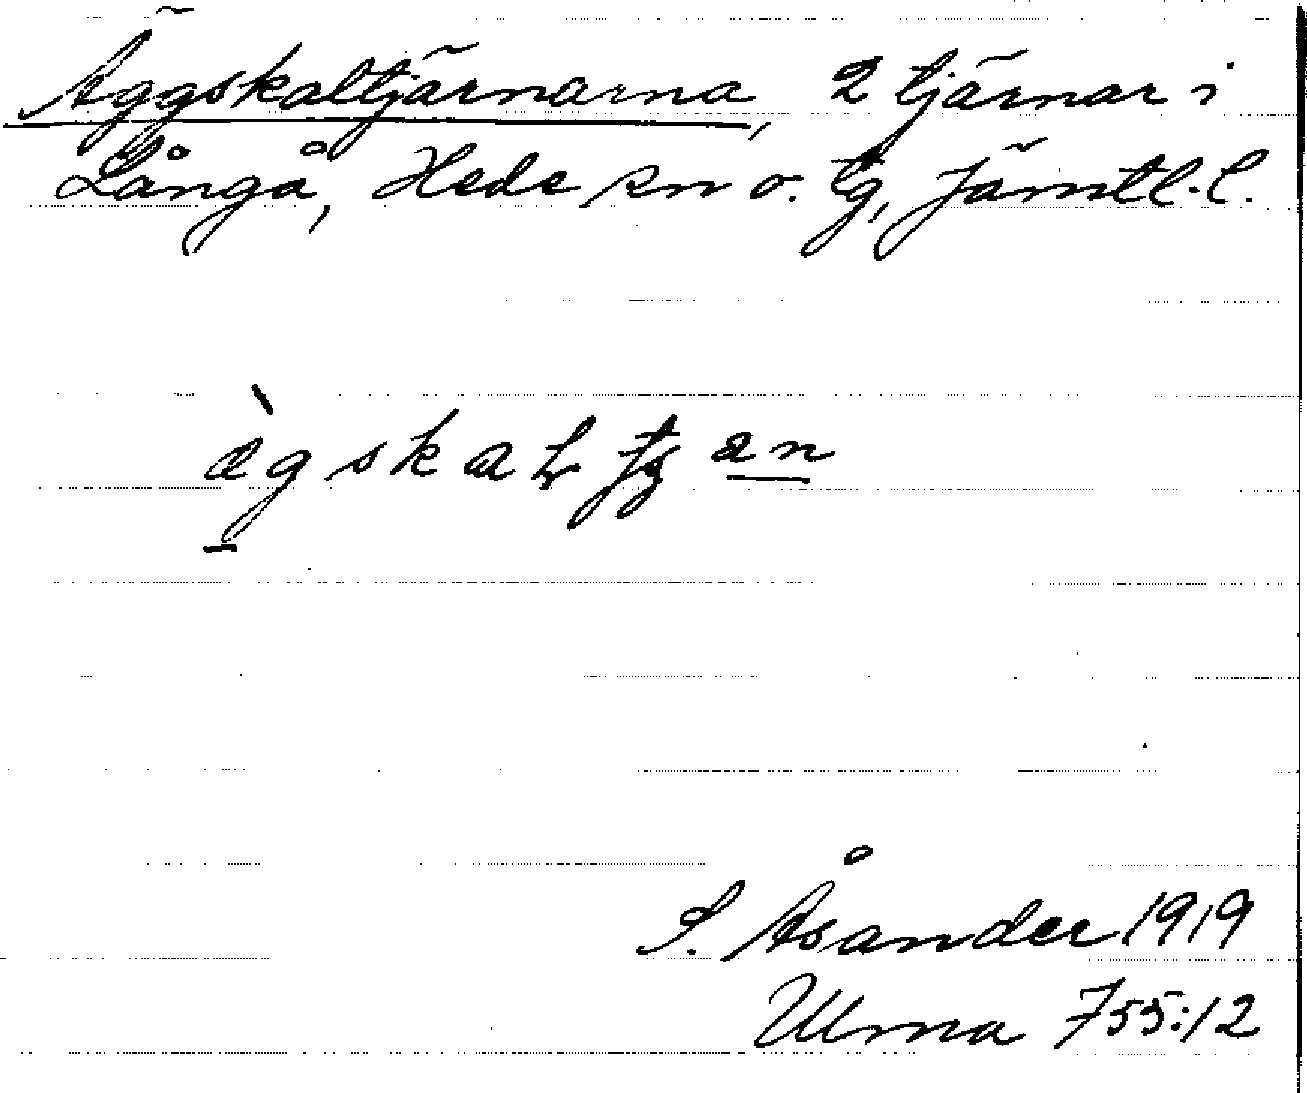 Äggskaltjärnarna, 2 tjärnar i
Långå, Hede sn o. tg, Jämtl. l.
S. Åsander 1919
Ulma 755:12